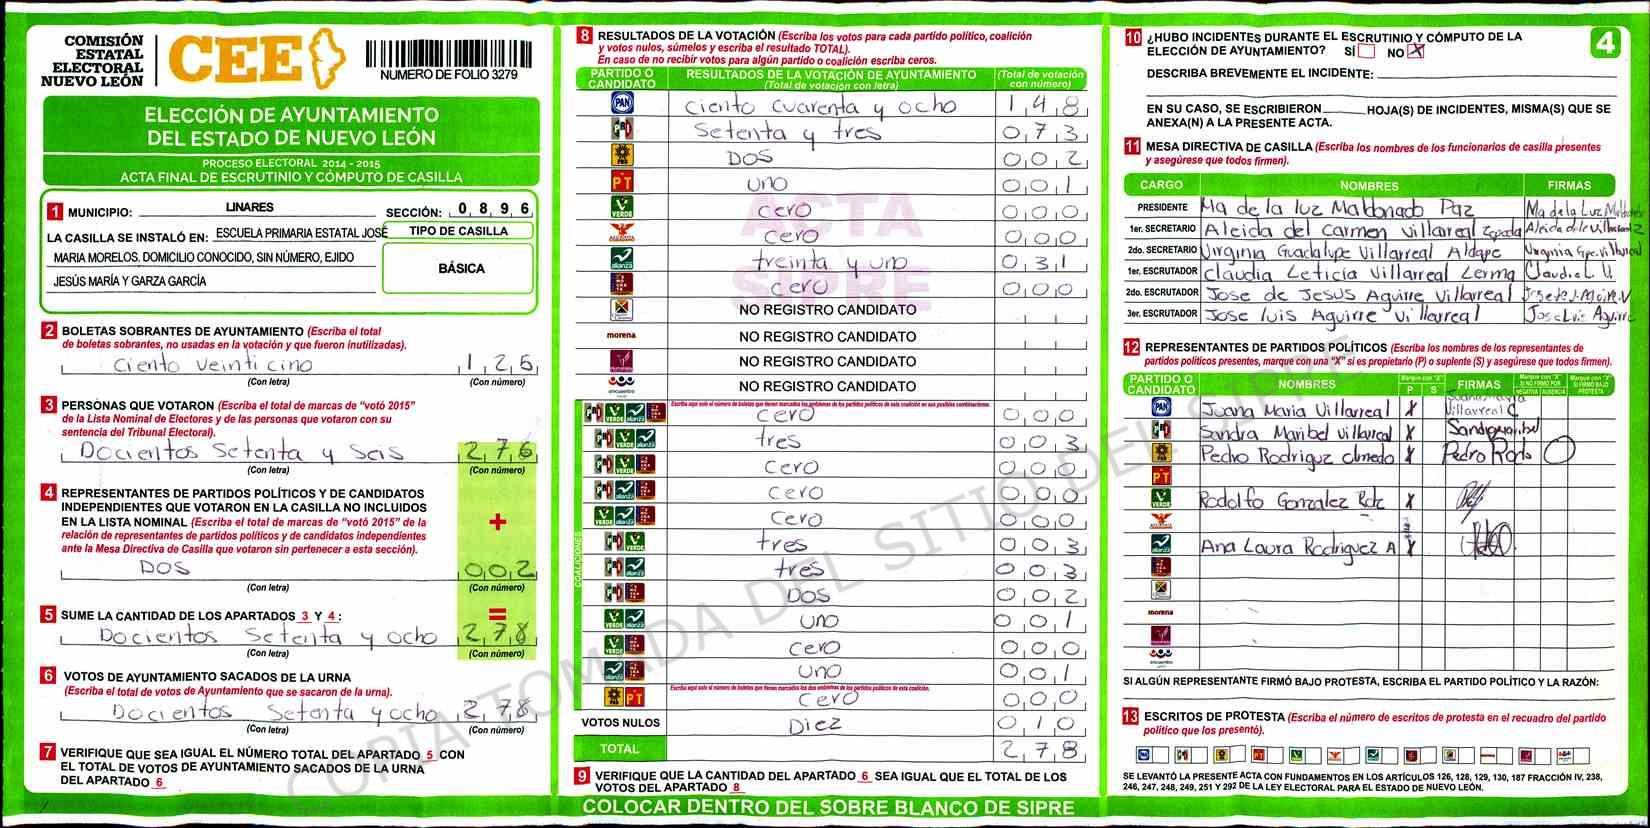 COMISIÓN
ESTATAL
ELECTORAL
NUEVO LEÓN
CEE
NUMERO DE FOLIO 3279
ELECCIÓN DE AYUNTAMIENTO
DEL ESTADO DE NUEVO LEÓN
PROCESO ELECTORAL 2014 - 2015
ACTA FINAL DE ESCRUTINIO Y CÓMPUTO DE CASILLA
1 MUNICIPIO: LINARES SECCIÓN: 0,8,9,6
LA CASILLA SE INSTALÓ EN: ESCUELA PRIMARIA ESTATAL JOSÉ
MARIA MORELOS. DOMICILIO CONOCIDO, SIN NÚMERO, EJIDO
JESÚS MARÍA Y GARZA GARCÍA
TIPO DE CASILLA
BÁSICA
2 BOLETAS SOBRANTES DE AYUNTAMIENTO (Escriba el total
de boletas sobrantes, no usadas en la votación y que fueron inutilizadas).
Ciento veinticino 1,2,5
(Con letra) (Con número)
3 PERSONAS QUE VOTARON (Escriba el total de marcas de "votó 2015"
de la Lista Nominal de Electores y de las personas que votaron con su
sentencia del Tribunal Electoral).
Docientos Setenta y Seis 2,7,6
(Con letra) (Con número)
4 REPRESENTANTES DE PARTIDOS POLÍTICOS Y DE CANDIDATOS
INDEPENDIENTES QUE VOTARON EN LA CASILLA NO INCLUIDOS
EN LA LISTA NOMINAL (Escriba el total de marcas de "votó 2015" de la
relación de representantes de partidos políticos y de candidatos independientes
ante la Mesa Directiva de Casilla que votaron sin pertenecer a esta sección).
+
DOS 0,0,2
(Con letra) (Con número)
5 SUME LA CANTIDAD DE LOS APARTADOS 3 Y 4: =
Docientos Setenta y ocho 2,7,8
(Con letra) (Con número)
6 VOTOS DE AYUNTAMIENTO SACADOS DE LA URNA
(Escriba el total de votos de Ayuntamiento que se sacaron de la urna).
Docientos Setenta y ocho 2,7,8
(Con letra) (Con número)
7 VERIFIQUE QUE SEA IGUAL EL NÚMERO TOTAL DEL APARTADO 5 CON
EL TOTAL DE VOTOS DE AYUNTAMIENTO SACADOS DE LA URNA
DEL APARTADO 6
8 RESULTADOS DE LA VOTACIÓN (Escriba los votos para cada partido político, coalición
y votos nulos, súmelos y escriba el resultado TOTAL).
En caso de no recibir votos para algún partido o coalición escriba ceros.
PARTIDO O CANDIDATO RESULTADOS DE LA VOTACIÓN DE AYUNTAMIENTO (Total de votación con letra) (Total de votación con número)
PAN Ciento cuarenta y ocho 1,4,8
PRI Setenta y tres 0,7,3
PRD DOS 0,0,2
PT uno 0,0,1
VERDE cero 0,0,0
cero 0,0,0
alianza treinta y uno 0,3,1
cero 0,0,0
NO REGISTRO CANDIDATO
morena NO REGISTRO CANDIDATO
NO REGISTRO CANDIDATO
encuentro NO REGISTRO CANDIDATO
ACTA
SIPRE
COALICIONES
Escriba aquí solo el número de boletas que tienen marcados los emblemas de los partidos políticos de esta coalición en sus posibles combinaciones.
VERDE alianza cero 0,0,0
VERDE alianza tres 0,0,3
VERDE cero 0,0,0
alianza cero 0,0,0
VERDE alianza cero 0,0,0
VERDE tres 0,0,3
alianza tres 0,0,3
DOS 0,0,2
VERDE alianza uno 0,0,1
VERDE cero 0,0,0
alianza uno 0,0,1
Escriba aquí solo el número de boletas que tienen marcados los dos emblemas de los partidos políticos de esta coalición.
PRD PT cero 0,0,0
VOTOS NULOS Diez 0,1,0
TOTAL 2,7,8
9 VERIFIQUE QUE LA CANTIDAD DEL APARTADO 6 SEA IGUAL QUE EL TOTAL DE LOS
VOTOS DEL APARTADO 8
COLOCAR DENTRO DEL SOBRE BLANCO DE SIPRE
10 ¿HUBO INCIDENTES DURANTE EL ESCRUTINIO Y CÓMPUTO DE LA
ELECCIÓN DE AYUNTAMIENTO? SÍ NO X
4
DESCRIBA BREVEMENTE EL INCIDENTE:
EN SU CASO, SE ESCRIBIERON HOJA(S) DE INCIDENTES, MISMA(S) QUE SE
ANEXA(N) A LA PRESENTE ACTA.
11 MESA DIRECTIVA DE CASILLA (Escriba los nombres de los funcionarios de casilla presentes
y asegúrese que todos firmen).
CARGO NOMBRES FIRMAS
PRESIDENTE Ma de la luz Maldonado Paz Ma de la Luz
1er. SECRETARIO Aleida del Carmen Villarreal Aleida
2do. SECRETARIO Virginia Guadalupe Villarreal Aldape Virginia Gpe. Villarreal
1er. ESCRUTADOR Claudia Leticia Villarreal Lerma Claudia L. V.
2do. ESCRUTADOR Jose de Jesus Aguirre Villarreal
3er. ESCRUTADOR Jose luis Aguirre Villarreal Jose Luis Aguirre
12 REPRESENTANTES DE PARTIDOS POLÍTICOS (Escriba los nombres de los representantes de
partidos políticos presentes, marque con una "X" si es propietario (P) o suplente (S) y asegúrese que todos firmen).
PARTIDO O CANDIDATO NOMBRES Marque con "X" P S FIRMAS Marque con "X" SI NO FIRMÓ POR NEGATIVA AUSENCIA Marque con "X" SI FIRMÓ BAJO PROTESTA
PAN Juana Maria Villarreal X Juana Maria Villarreal
PRI Sandra Maribel Villarreal X
PRD Pedro Rodriguz Olmedo X Pedro Rodo
PT
VERDE Rodolfo Gonzalez Rdz X
alianza Ana Laura Rodriguez A X
morena
encuentro
SI ALGÚN REPRESENTANTE FIRMÓ BAJO PROTESTA, ESCRIBA EL PARTIDO POLÍTICO Y LA RAZÓN:
13 ESCRITOS DE PROTESTA (Escriba el número de escritos de protesta en el recuadro del partido
político que los presentó).
SE LEVANTÓ LA PRESENTE ACTA CON FUNDAMENTOS EN LOS ARTÍCULOS 126, 128, 129, 130, 187 FRACCIÓN IV, 238,
246, 247, 248, 249, 251 Y 292 DE LA LEY ELECTORAL PARA EL ESTADO DE NUEVO LEÓN.
COPIA TOMADA DEL SITIO DEL SIPRE